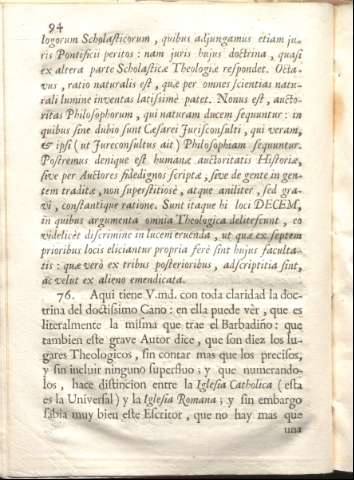 94
logorum Scholasticorum, quibus adjungamus etiam ju-
ris Pontificii peritos: nam juris hujus doctrina, quasi
ex altera parte Scholasticæ Theologiæ respondet. Octa-
vus, ratio naturalis est, quæ per omnes scientias natu-
rali lumine inventas latissimè patet. Nonus est, aucto-
ritas Philosophorum, qui naturam ducem sequuntur: in
quibus sine dubio sunt Cæsarei Jurisconsulti, qui veram,
& ipsi (ut Jureconsultus ait) Philosophiam sequuntur.
Postremus denique est humanæ auctoritatis Historiæ,
sive per Auctores fidedignos scriptæ, sive de gente in gen-
tem traditæ, non superstitiosè, atque aniliter, sed gra-
vi, constantique ratione. Sunt itaque hi loci DECEM,
in quibus argumenta omnia Theologica delitescunt, eo
videlicèt discrimine in lucem eruenda, ut quæ ex septem
prioribus locis eliciantur propria ferè sint hujus faculta-
tis: quæ verò ex tribus posterioribus, adscriptitia sint,
ac velut ex alieno emendicata.
76. Aqui tiene V.md. con toda claridad la doc-
trina del doctissimo Cano: en ella puede vèr, que es
literalmente la misma que trae el Barbadiño: que
tambien este grave Autor dice, que son diez los lu-
gares Theologicos, sin contar mas que los precisos,
y sin incluir ninguno superfluo; y que numerando-
los, hace distincion entre la Iglesia Catholica (esta
es la Universal) y la Iglesia Romana; y sin embargo
sabìa muy bien este Escritor, que no hay mas que
una